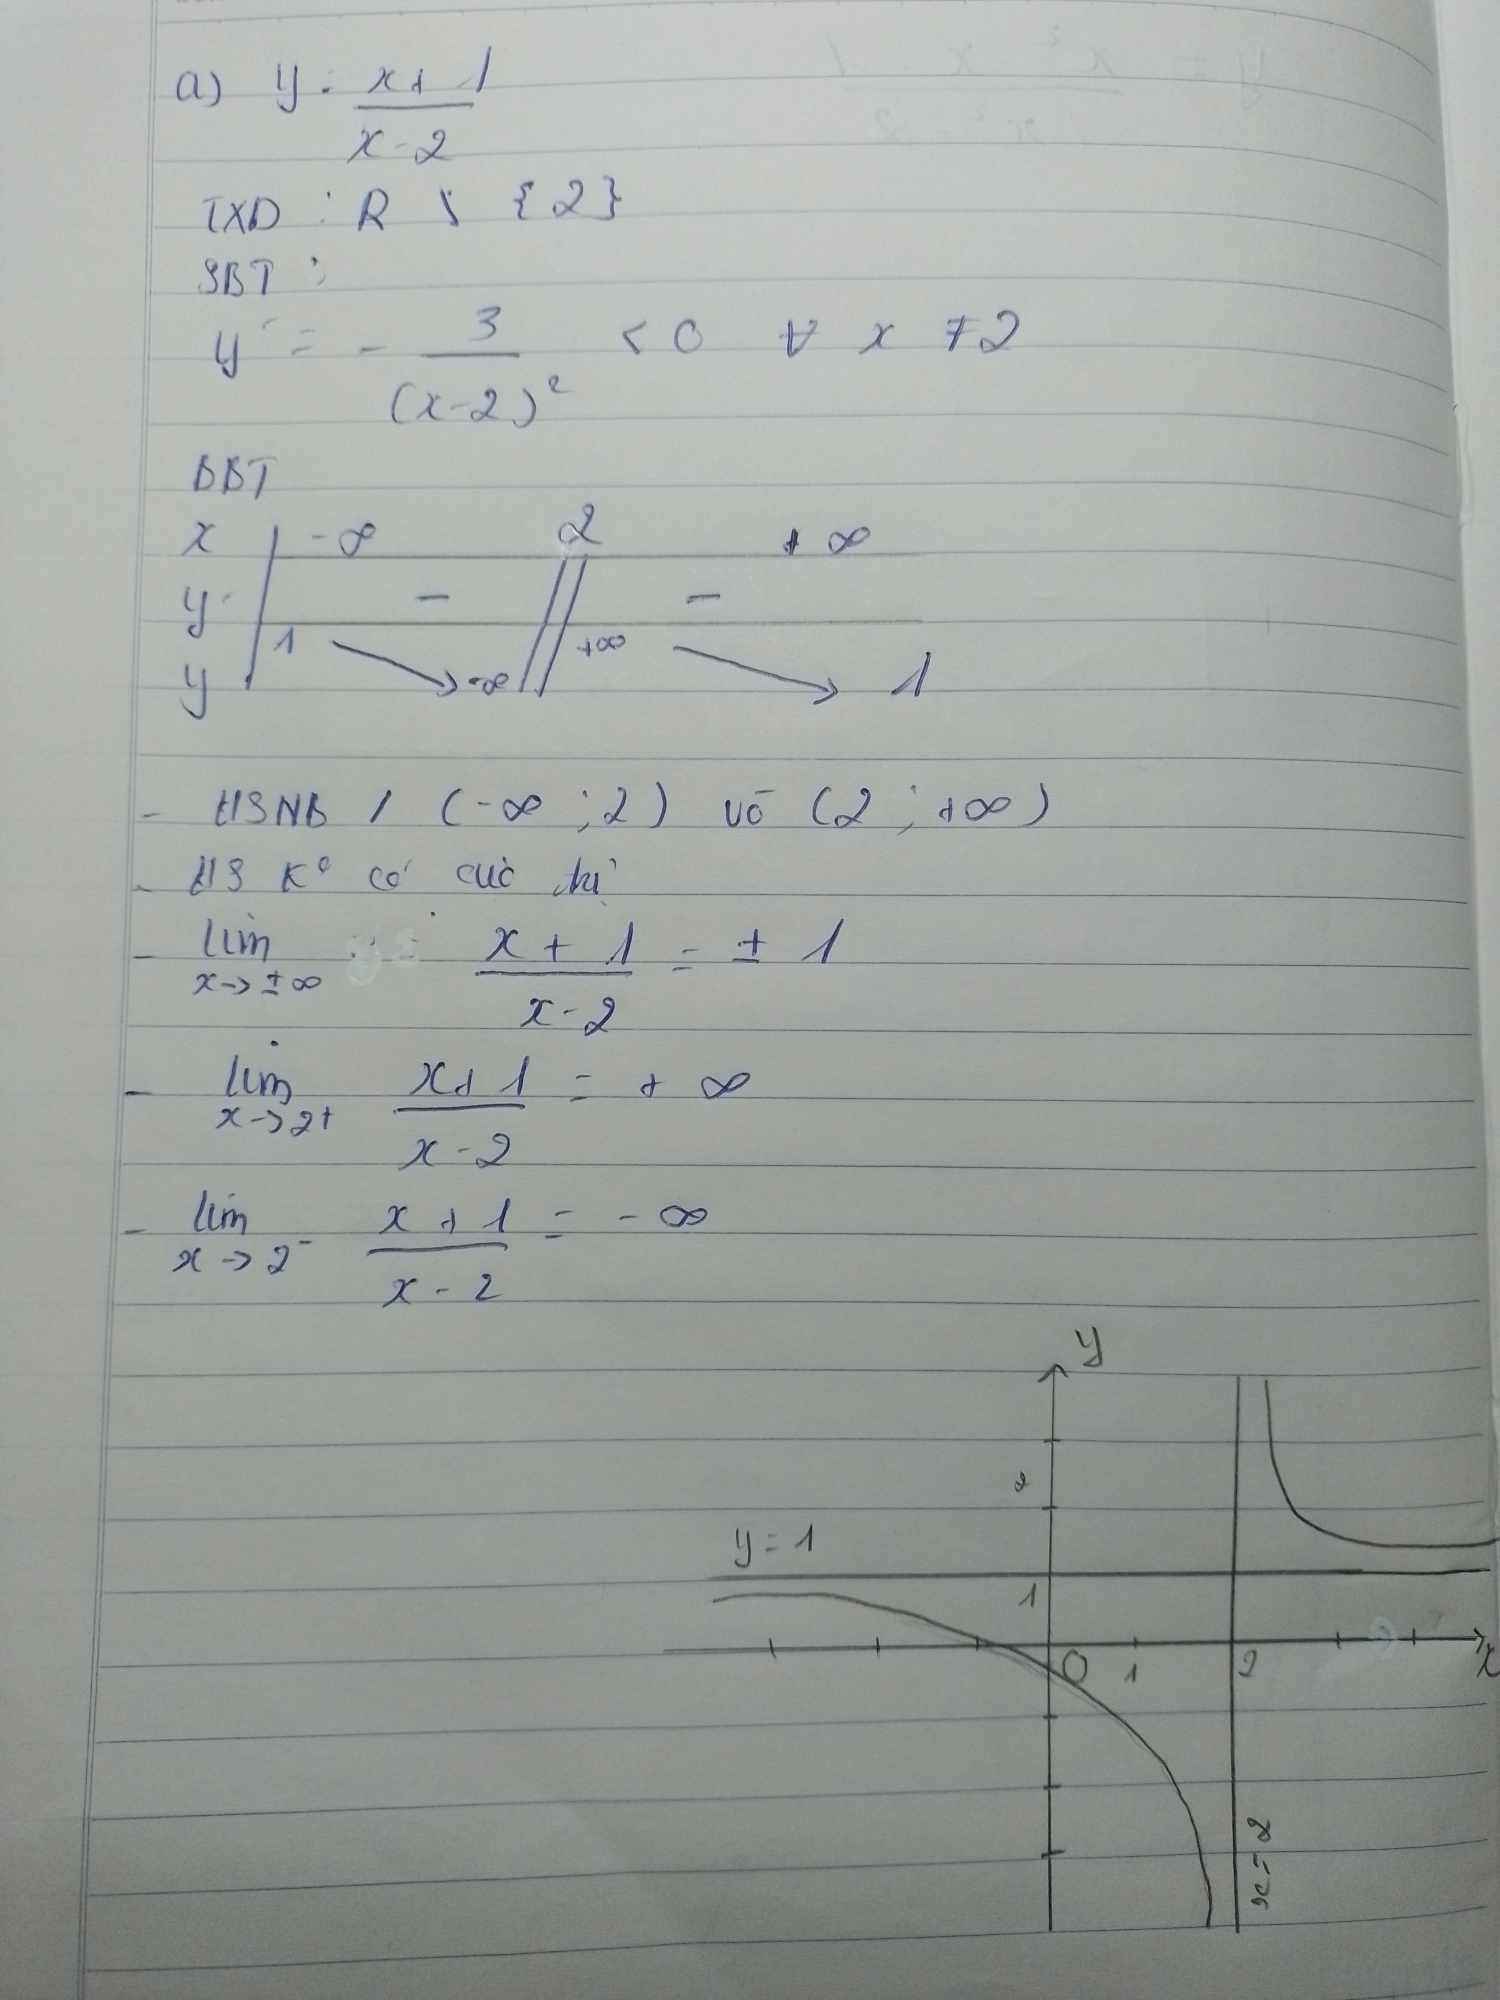 a) y = x + 1 / x - 2
TXD : R \ {2}
SBT :
y' = - 3 / (x-2)² < 0 ∀ x ≠ 2
BBT
x -∞ 2 +∞
y' - -
y 1 -∞ +∞ 1
- HSNB / (-∞ ; 2) và (2 ; +∞)
- HS K° có cực trị
- lim x→±∞ x + 1 / x - 2 = ± 1
- lim x→2+ x + 1 / x - 2 = + ∞
- lim x→2- x + 1 / x - 2 = - ∞
y
2
y = 1
1
O 1 2 x
x = 2